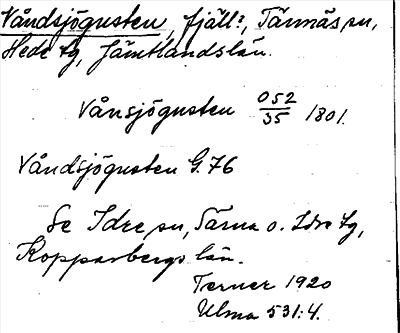 Våndsjögusten, fjäll?, Tännäs sn,
Hede tg, Jämtlandslän.
Vånsjögusten 052/35 1801.
Våndsjögusten G.76
Se Idre sn, Särna o. Idre tg,
Kopparbergs län.
Terner 1920
Ulma 531:4.